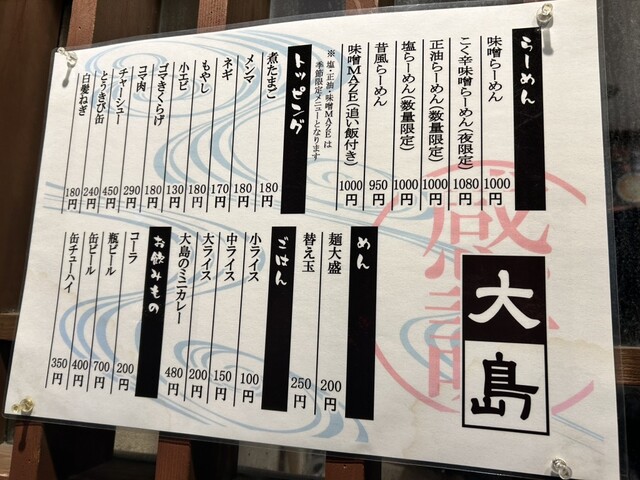 らーめん
味噌らーめん 1000円
こく辛味噌らーめん(夜限定) 1080円
正油らーめん(数量限定) 1000円
塩らーめん(数量限定) 1000円
昔風らーめん 950円
味噌MAZE(追い飯付き) 1000円
※ 塩・正油・味噌MAZEは
季節限定メニューとなります
トッピング
煮たまご 180円
メンマ 180円
ネギ 170円
もやし 180円
小エビ 130円
ゴマきくらげ 180円
コマ肉 290円
チャーシュー 450円
とうきび缶 240円
白髪ねぎ 180円
大島
めん
麺大盛 200円
替え玉 250円
ごはん
小ライス 100円
中ライス 150円
大ライス 200円
大島のミニカレー 480円
お飲みもの
コーラ 200円
瓶ビール 700円
缶ビール 400円
缶チューハイ 350円